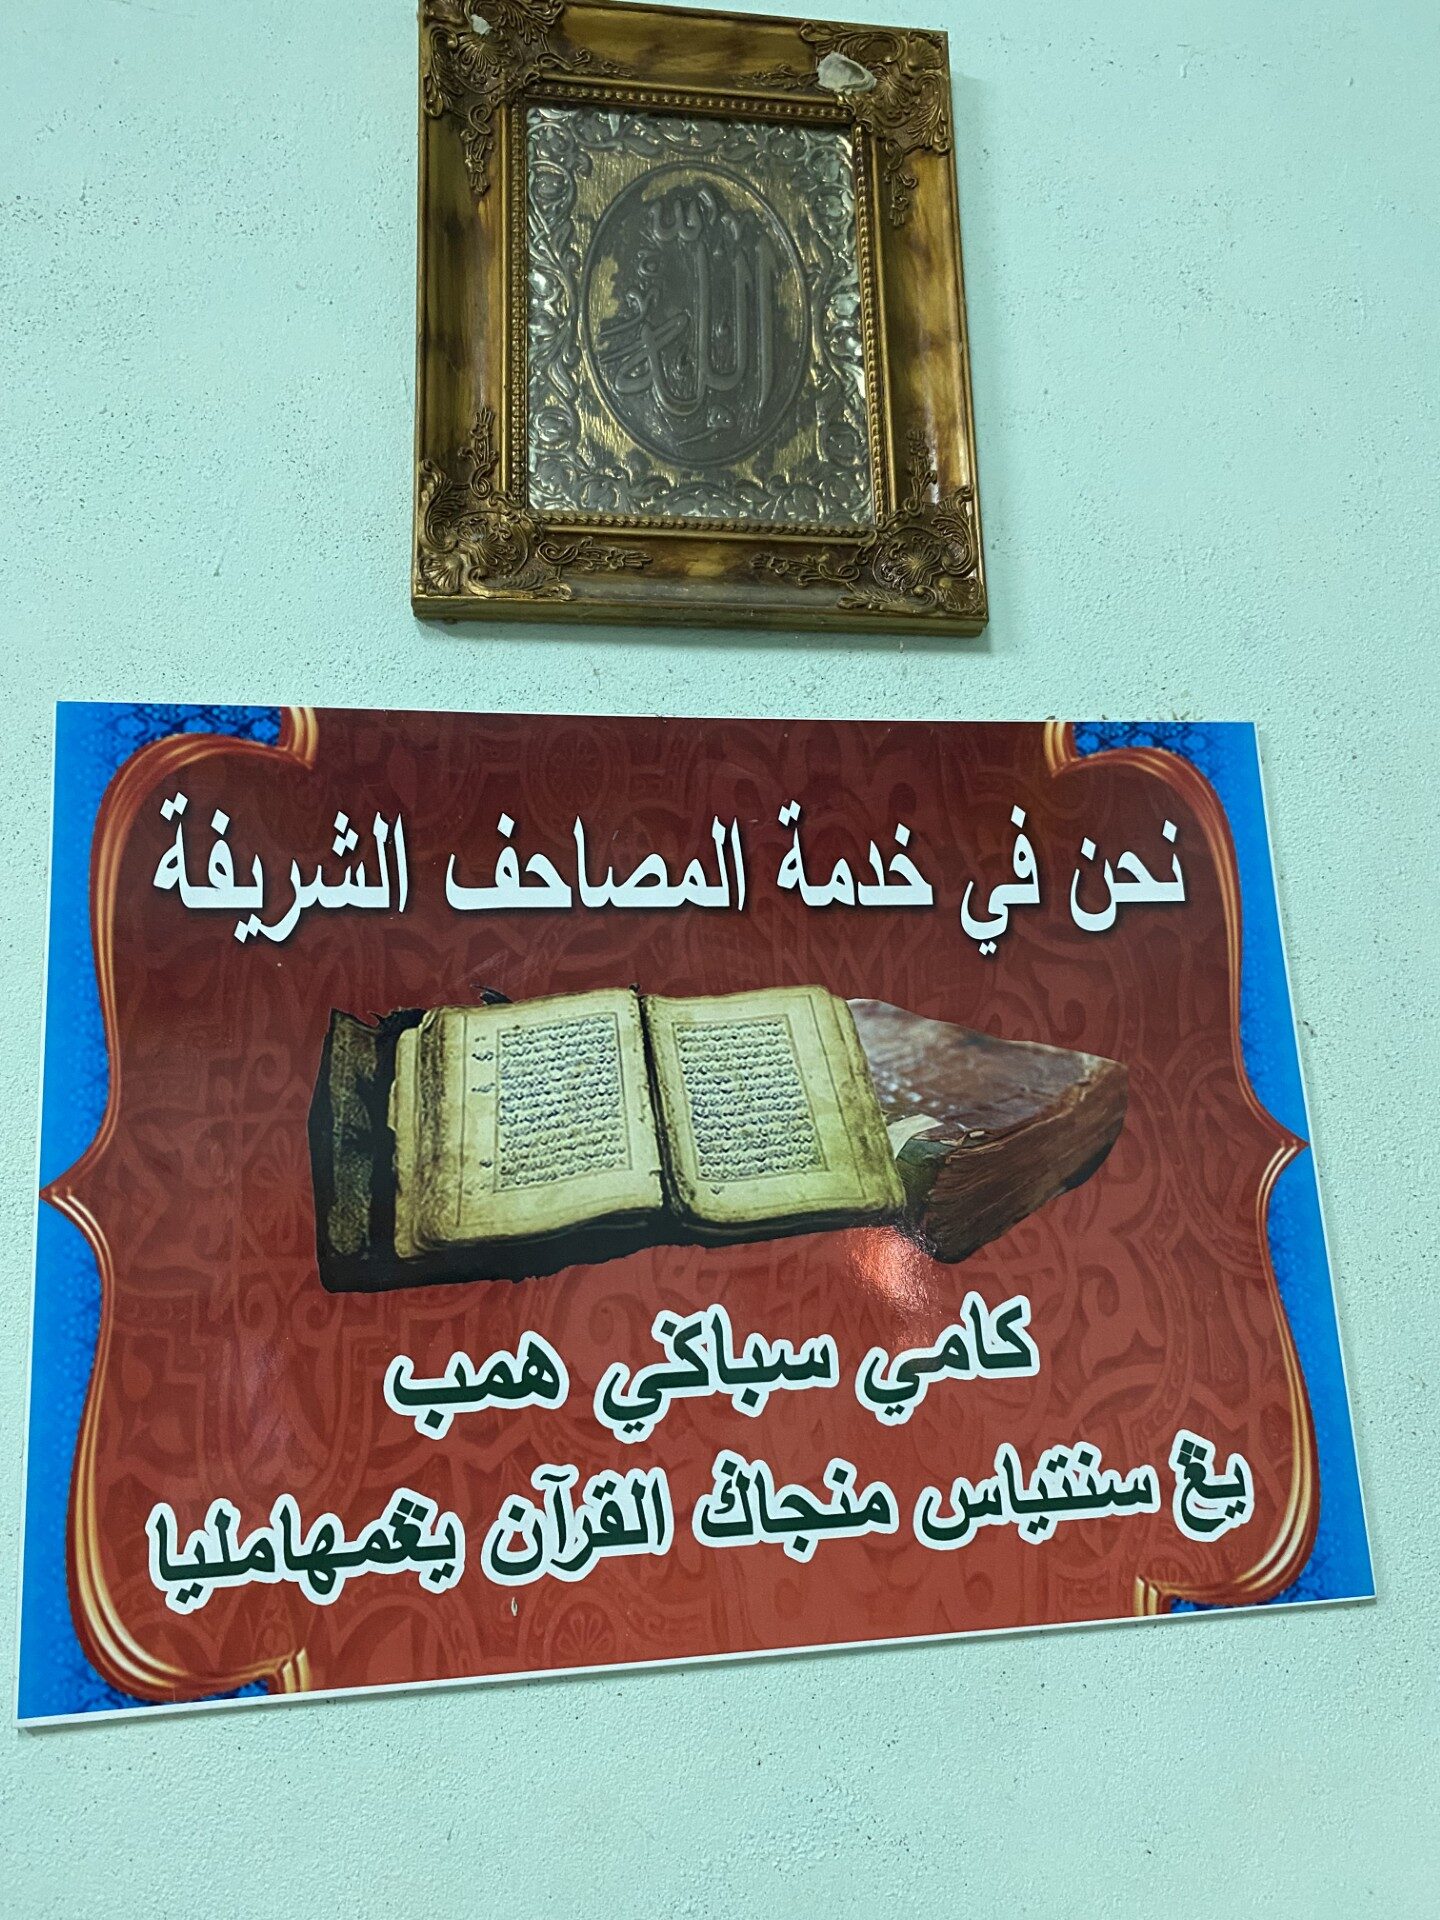 الله
نحن في خدمة المصاحف الشريفة
كامي سباكي همب
يڠ سنتياس منجاݢ القرآن يڠمهامليا